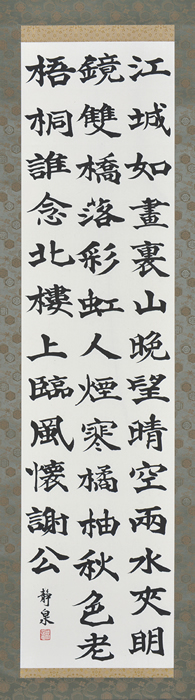 江城如畫裏山晚望晴空兩水夾明
鏡雙橋落彩虹人煙寒橘柚秋色老
梧桐誰念北樓上臨風懷謝公
靜泉